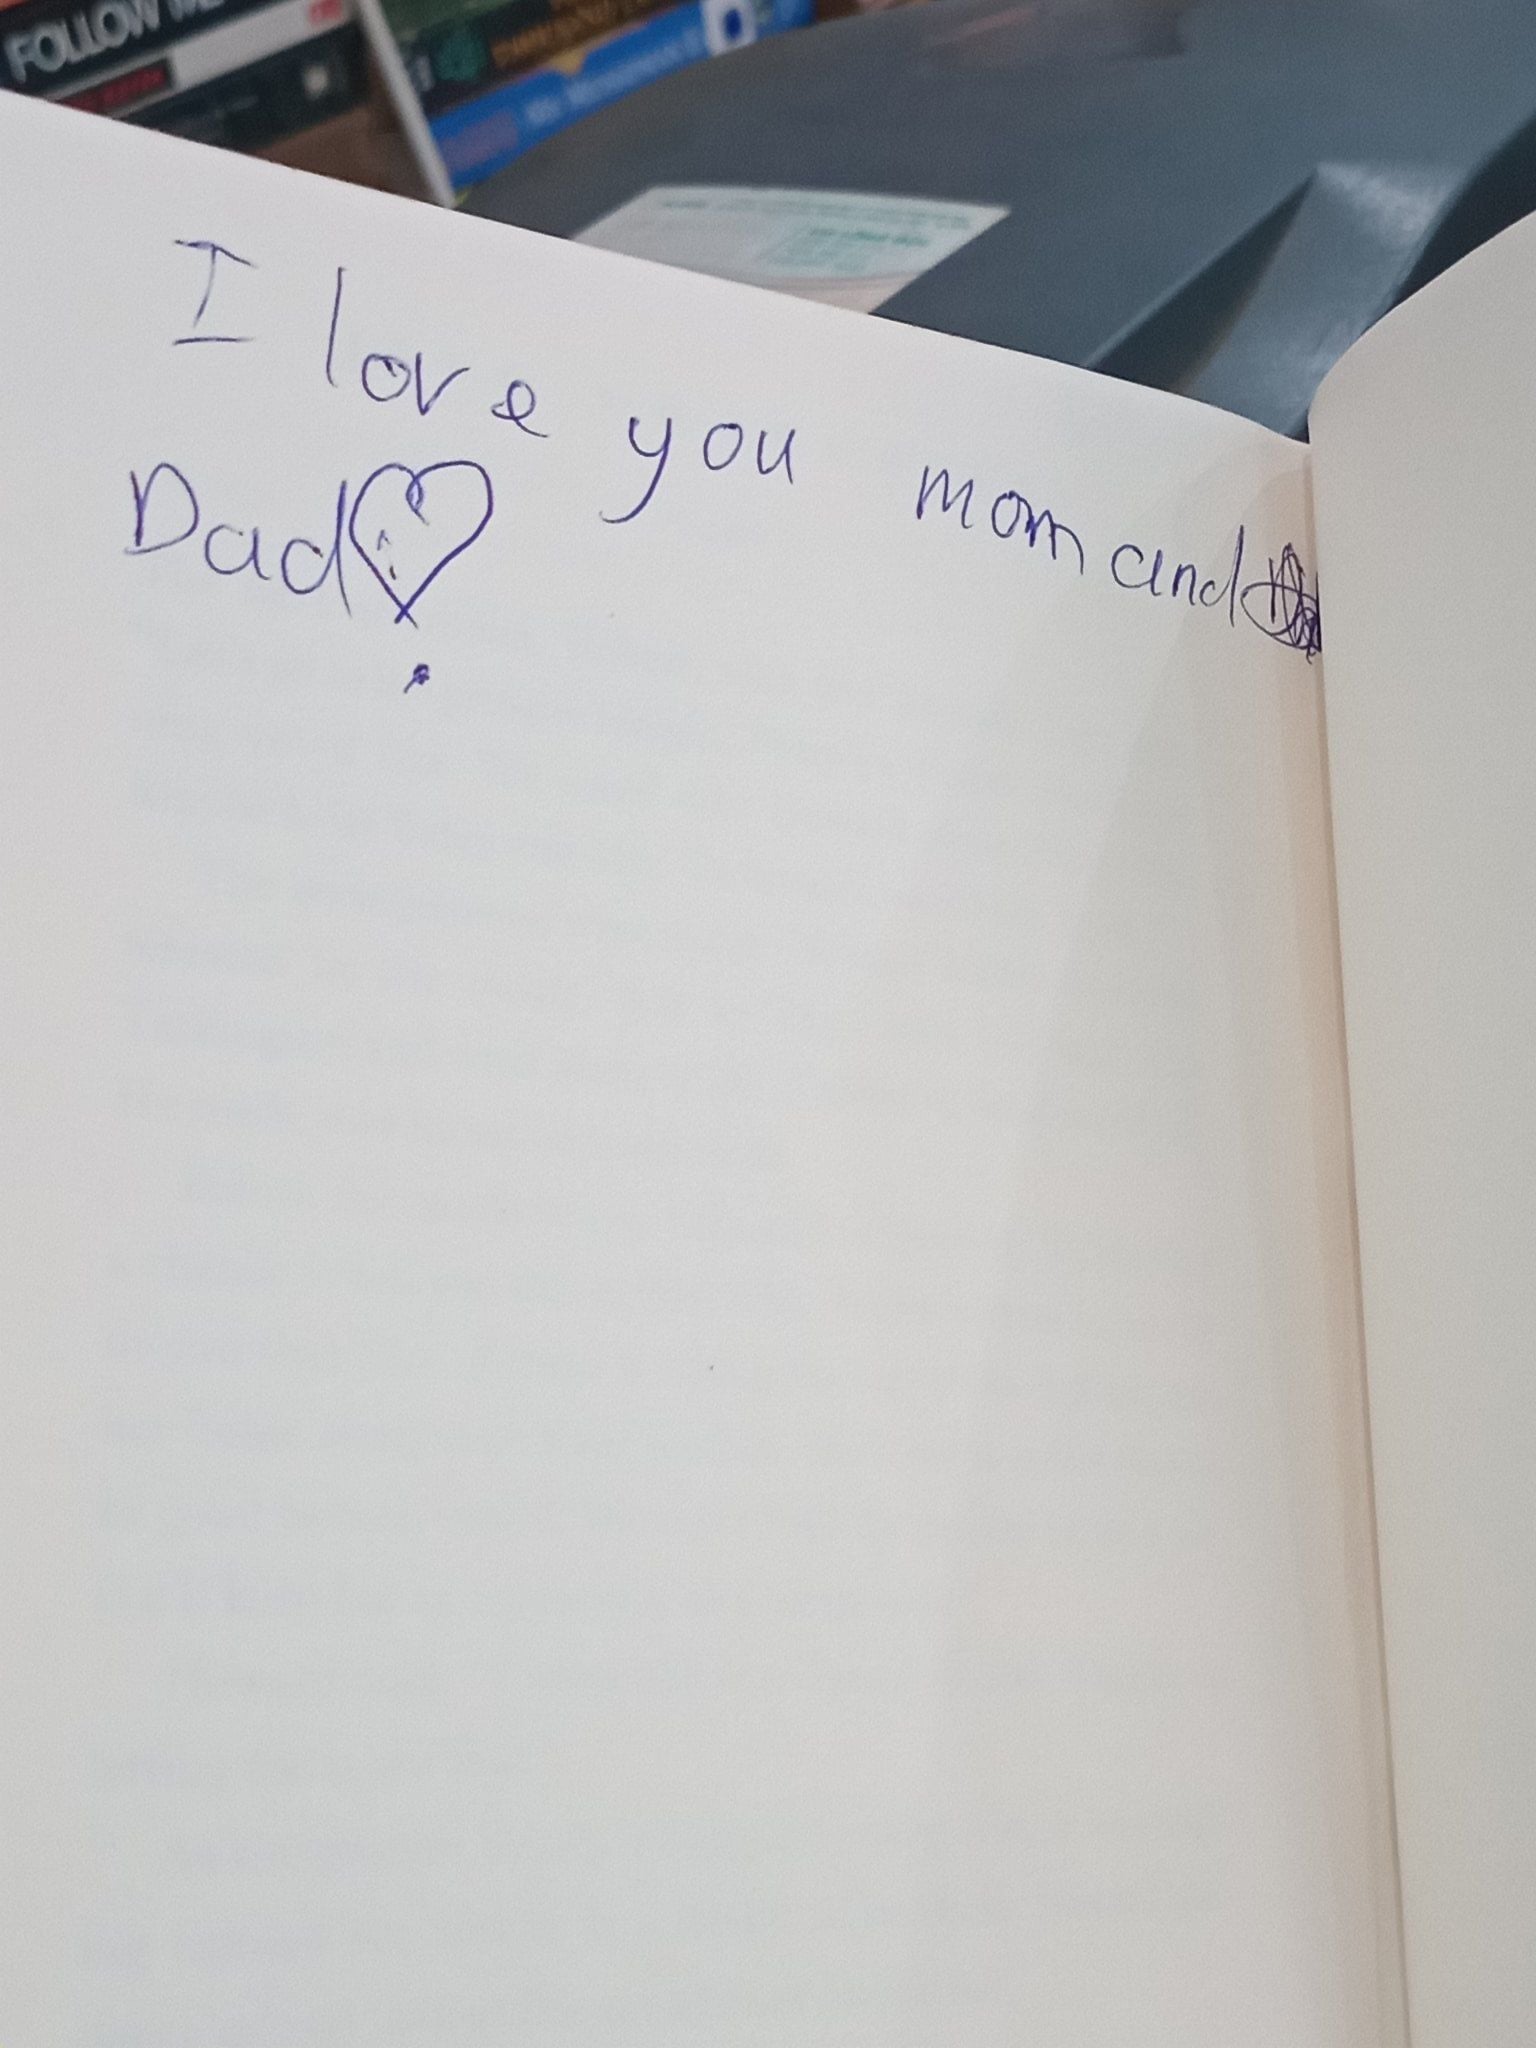 FOLLOW ME
I love you mom and
Dad